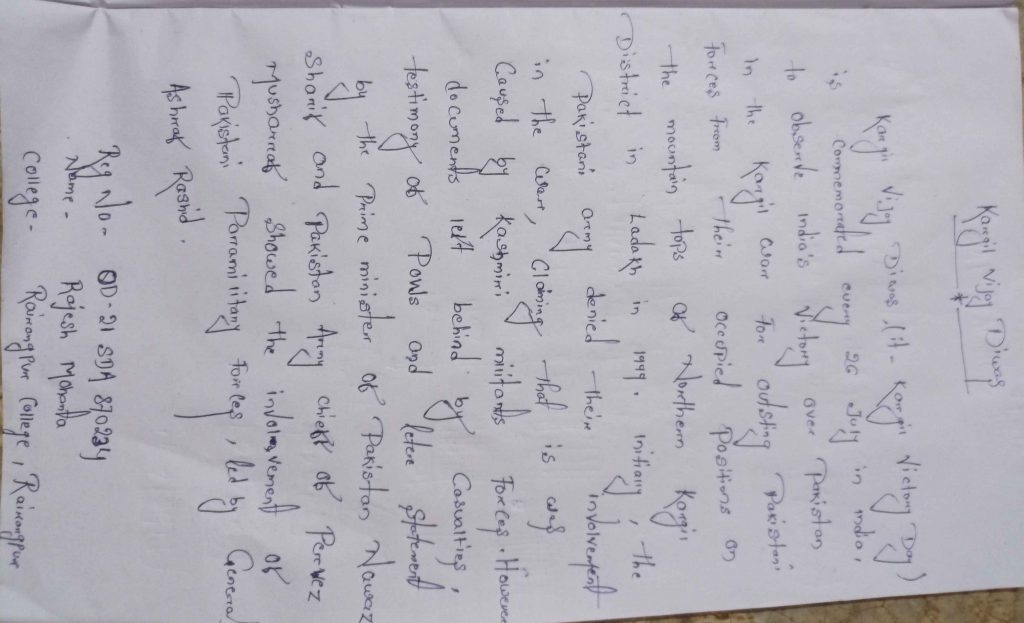 Kargil Vijay Diwas
Kargil Vijay Diwas, (lit- Kargil Victory Day)
is commemorated every 26 July in india,
to observe india's Victory over Pakistan
in the Kargil war for outsting Pakistani
forces from their occupied Positions on
the mountain tops of Northern Kargil
District in Ladakh in 1999. initially, the
Pakistani army denied their involvement
in the war, Claiming that is was
Caused by Kashmiri militants Forces. However
documents left behind by Casualties,
testimony of POWs and letere Statement
by the Prime minister of Pakistan Nawaz
Sharif and Pakistan Army chief of Pervez
Musharraf Showed the involvement of
Pakistani Paramilitary Forces, led by General
Ashraf Rashid.
Reg No - OD-21 SDA 870234
Name - Rajesh Mohanta
College - Rairangpur College, Rairangpur